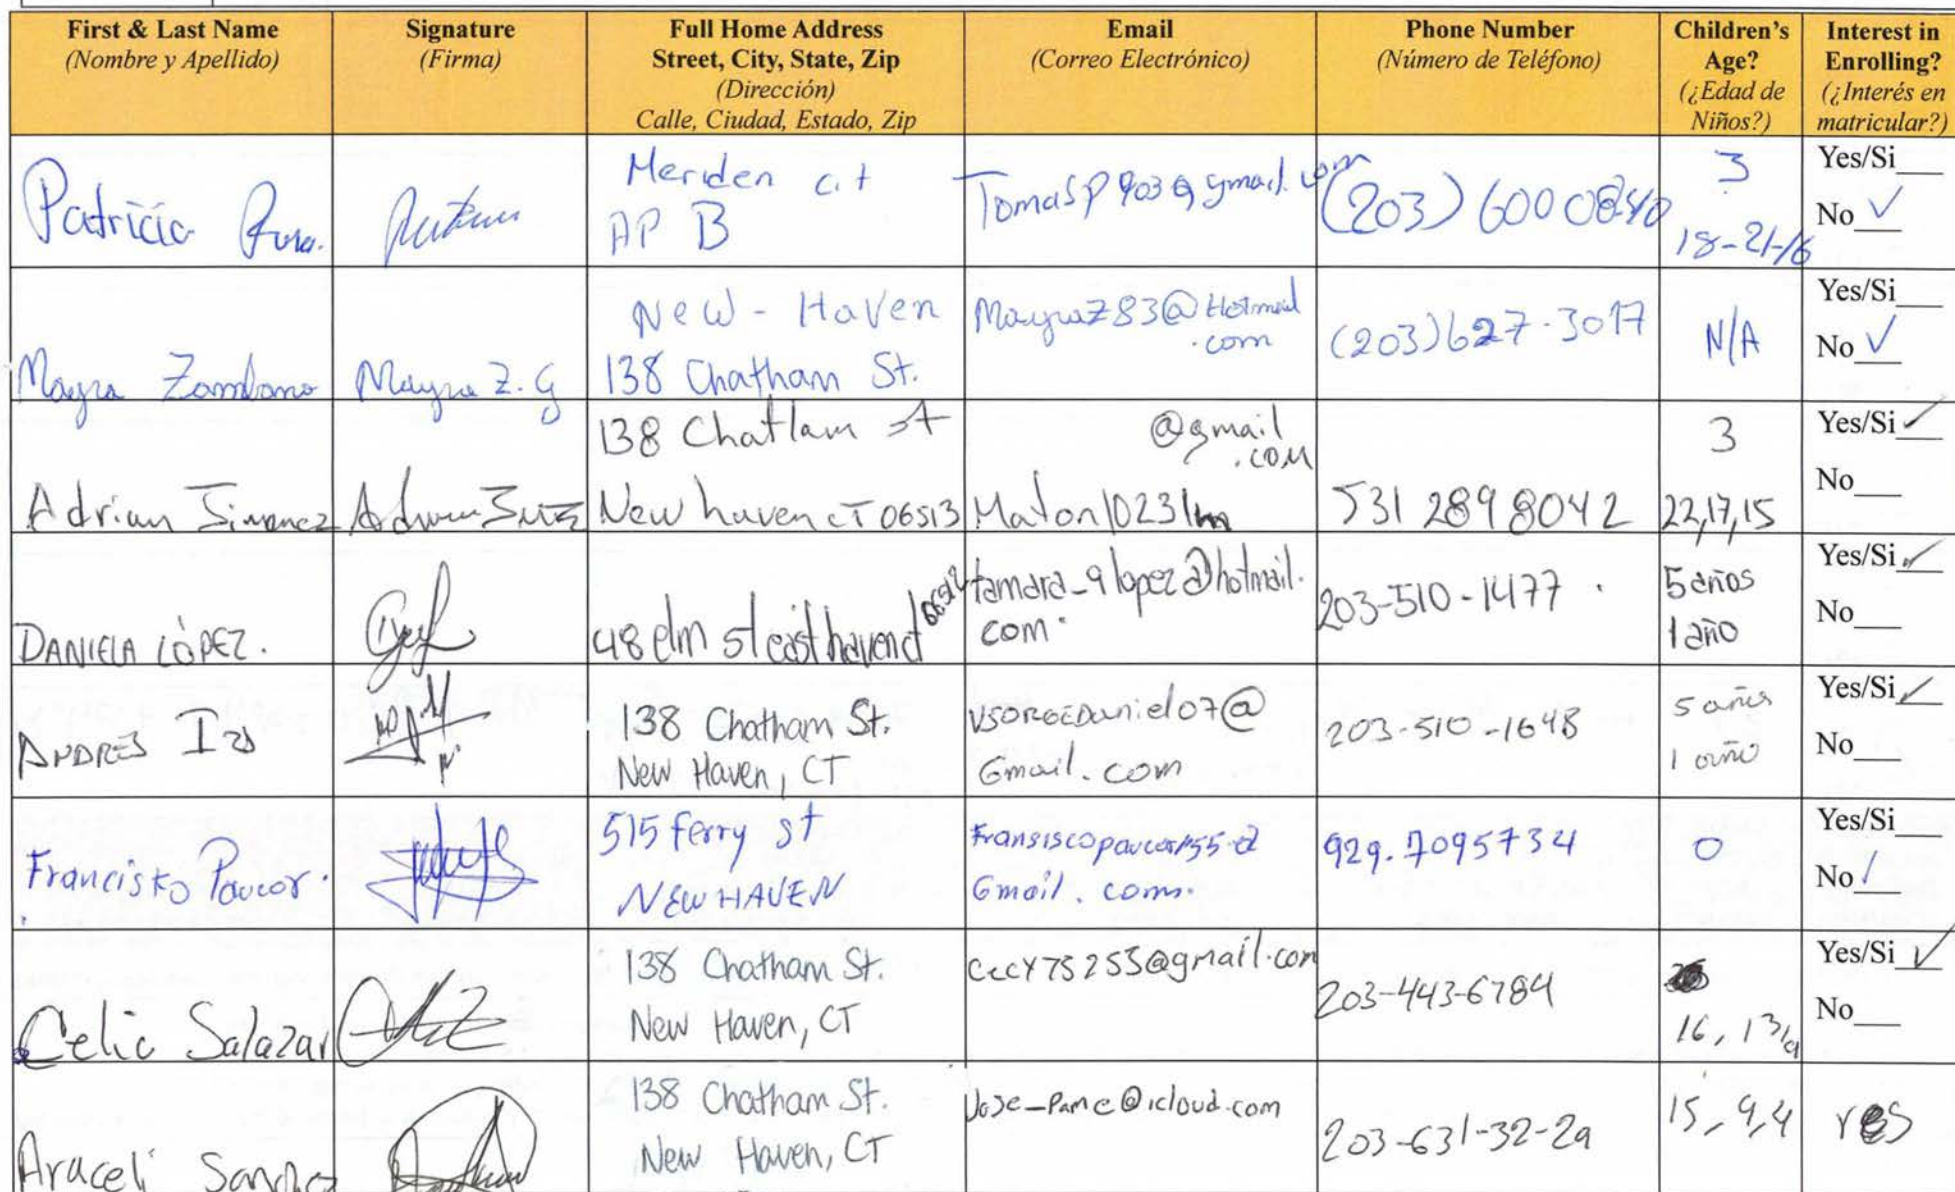 First & Last Name
(Nombre y Apellido)
Signature
(Firma)
Full Home Address
Street, City, State, Zip
(Dirección)
Calle, Ciudad, Estado, Zip
Email
(Correo Electrónico)
Phone Number
(Número de Teléfono)
Children's
Age?
(¿Edad de
Niños?)
Interest in
Enrolling?
(¿Interés en
matricular?)
Patricia
Meriden c.t
AP B
(203)
3
18-21-16
Yes/Si
No ✓
Mayra Zambrano
Mayra Z. G
New - Haven
138 Chatham St.
MayraZ83@Hotmail
.com
(203)627-3017
N/A
Yes/Si
No ✓
Adrian Jimenez
138 Chatlam st
New haven CT 06513
@gmail
.com
531 289 8042
3
22,17,15
Yes/Si ✓
No
DANIELA LÓPEZ.
48 elm st east haven ct 06512
tamara_9lopez@hotmail.
com.
203-510-1477
5 años
1 año
Yes/Si ✓
No
ANDRES
138 Chatham St.
New Haven, CT
Gmail.com
203-510-1648
5 años
1 año
Yes/Si ✓
No
Francisko Paucar.
515 ferry st
NEW HAVEN
Gmail. com.
929.7095734
0
Yes/Si
No ✓
Celia Salazar
138 Chatham St.
New Haven, CT
203-443-6784
16, 13,
Yes/Si ✓
No
Araceli Sanchez
138 Chatham St.
New Haven, CT
Jose_Pame@icloud.com
203-631-32-29
15, 9,4
Yes